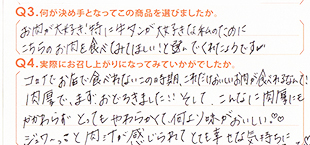 Q3.何が決め手となってこの商品を選びましたか。
お肉が大好き!特に牛タンが大好きな私のために
こちらのお肉を食べてみてほしい!と選んでくれたようです
Q4.実際にお召し上がりになってみていかがでしたか。
コロナでお店で食べれないこの時期、これだけおいしいお肉が食べれるなんて!
肉厚で、まずおどろきました!!そして、こんなに肉厚にも
かかわらず とってもやわらかくて、何より味がおいしい♡♡
ジュワーっと肉汁が感じられて とても幸せな気持ちに